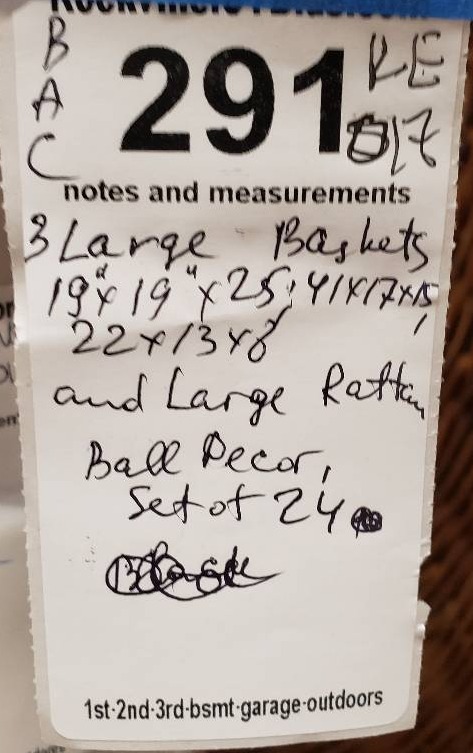 B
A
C
291
KE
17
notes and measurements
3 Large Baskets
19"x 19"x 25; 41x17x15,
22x13x8
and Large Rattan
Ball Decor,
Set of 24
1st-2nd-3rd-bsmt-garage-outdoors